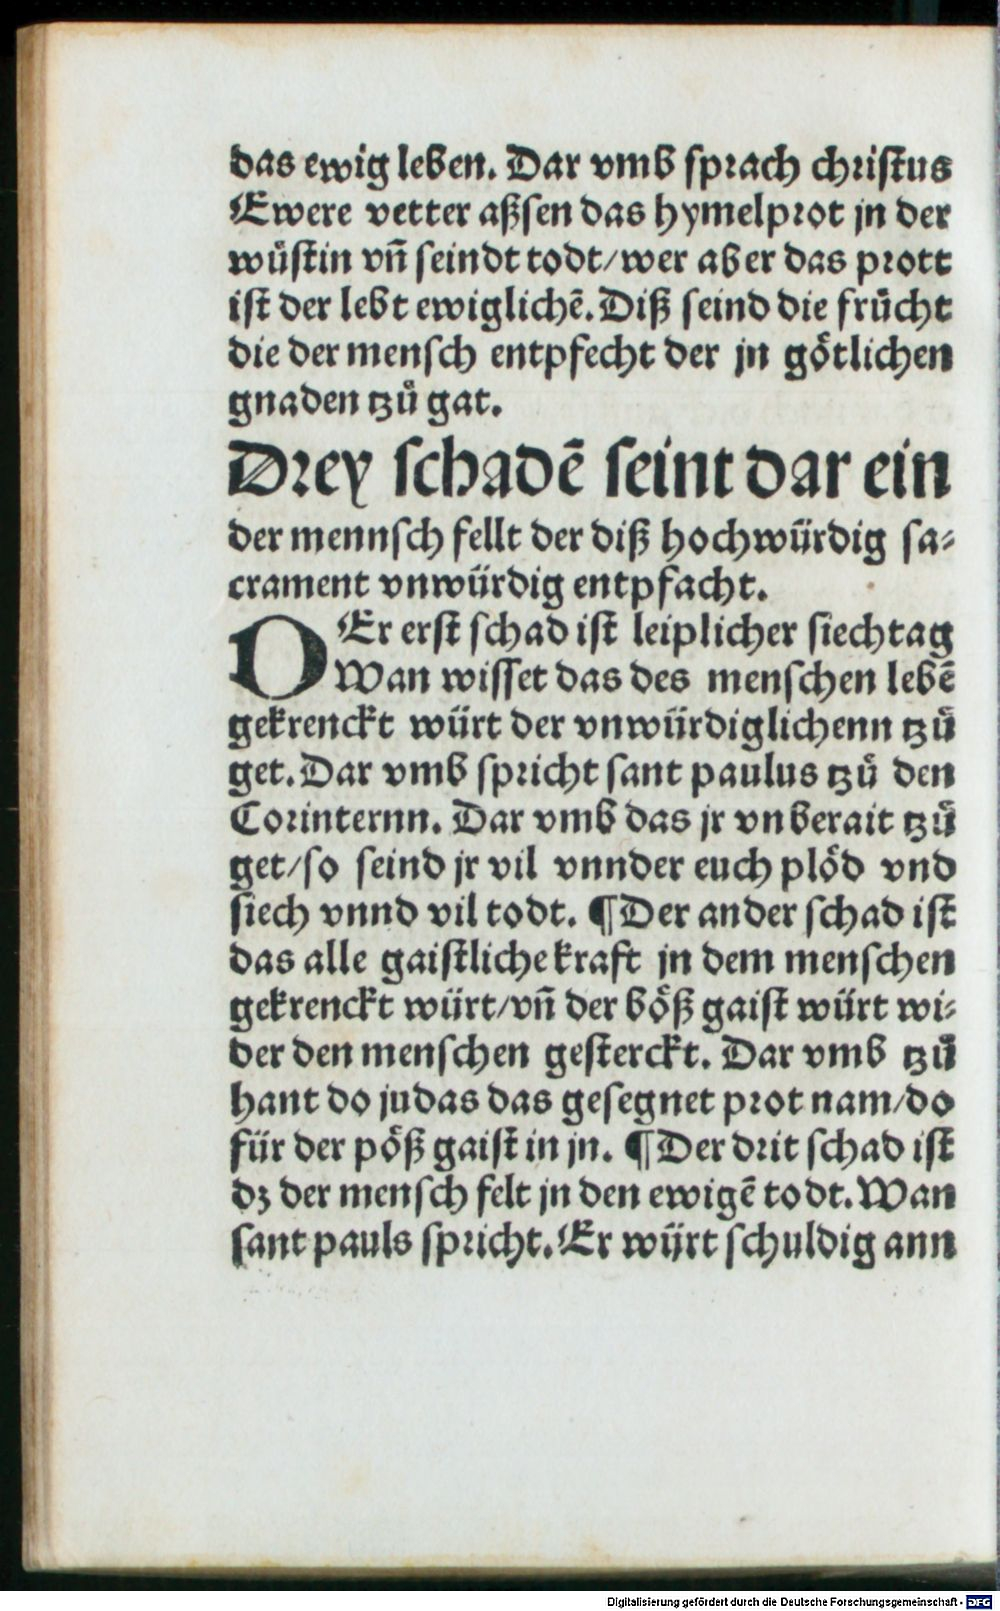 das ewig leben. Dar vmb sprach christus
Ewere vetter aßsen das hymelprot jn der
wuͤstin vñ seindt todt/wer aber das prott
ist der lebt ewiglichē. Diß seind die fruͤcht
die der mensch entpfecht der jn goͤtlichen
gnaden tzuͦ gat.
Drey schadē seint dar ein
der mennsch fellt der diß hochwürdig sa⸗
crament vnwürdig entpfacht.
DEr erst schad ist leiplicher siechtag
Wan wisset das des menschen lebē
gekrenckt würt der vnwürdiglichenn tzuͦ
get. Dar vmb spricht sant paulus tzuͦ den
Corinternn. Dar vmb das jr vnberait tzuͦ
get/so seind jr vil vnnder euch ploͤd vnd
siech vnnd vil todt. ¶ Der ander schad ist
das alle gaistliche kraft jn dem menschen
gekrenckt würt/vñ der boͤß gaist würt wi⸗
der den menschen gesterckt. Dar vmb tzuͦ
hant do judas das gesegnet prot nam/do
für der poͤß gaist in jn. ¶ Der drit schad ist
dz der mensch felt jn den ewigē todt. Wan
sant pauls spricht. Er würt schuldig ann
Digitalisierung gefördert durch die Deutsche Forschungsgemeinschaft - DFG